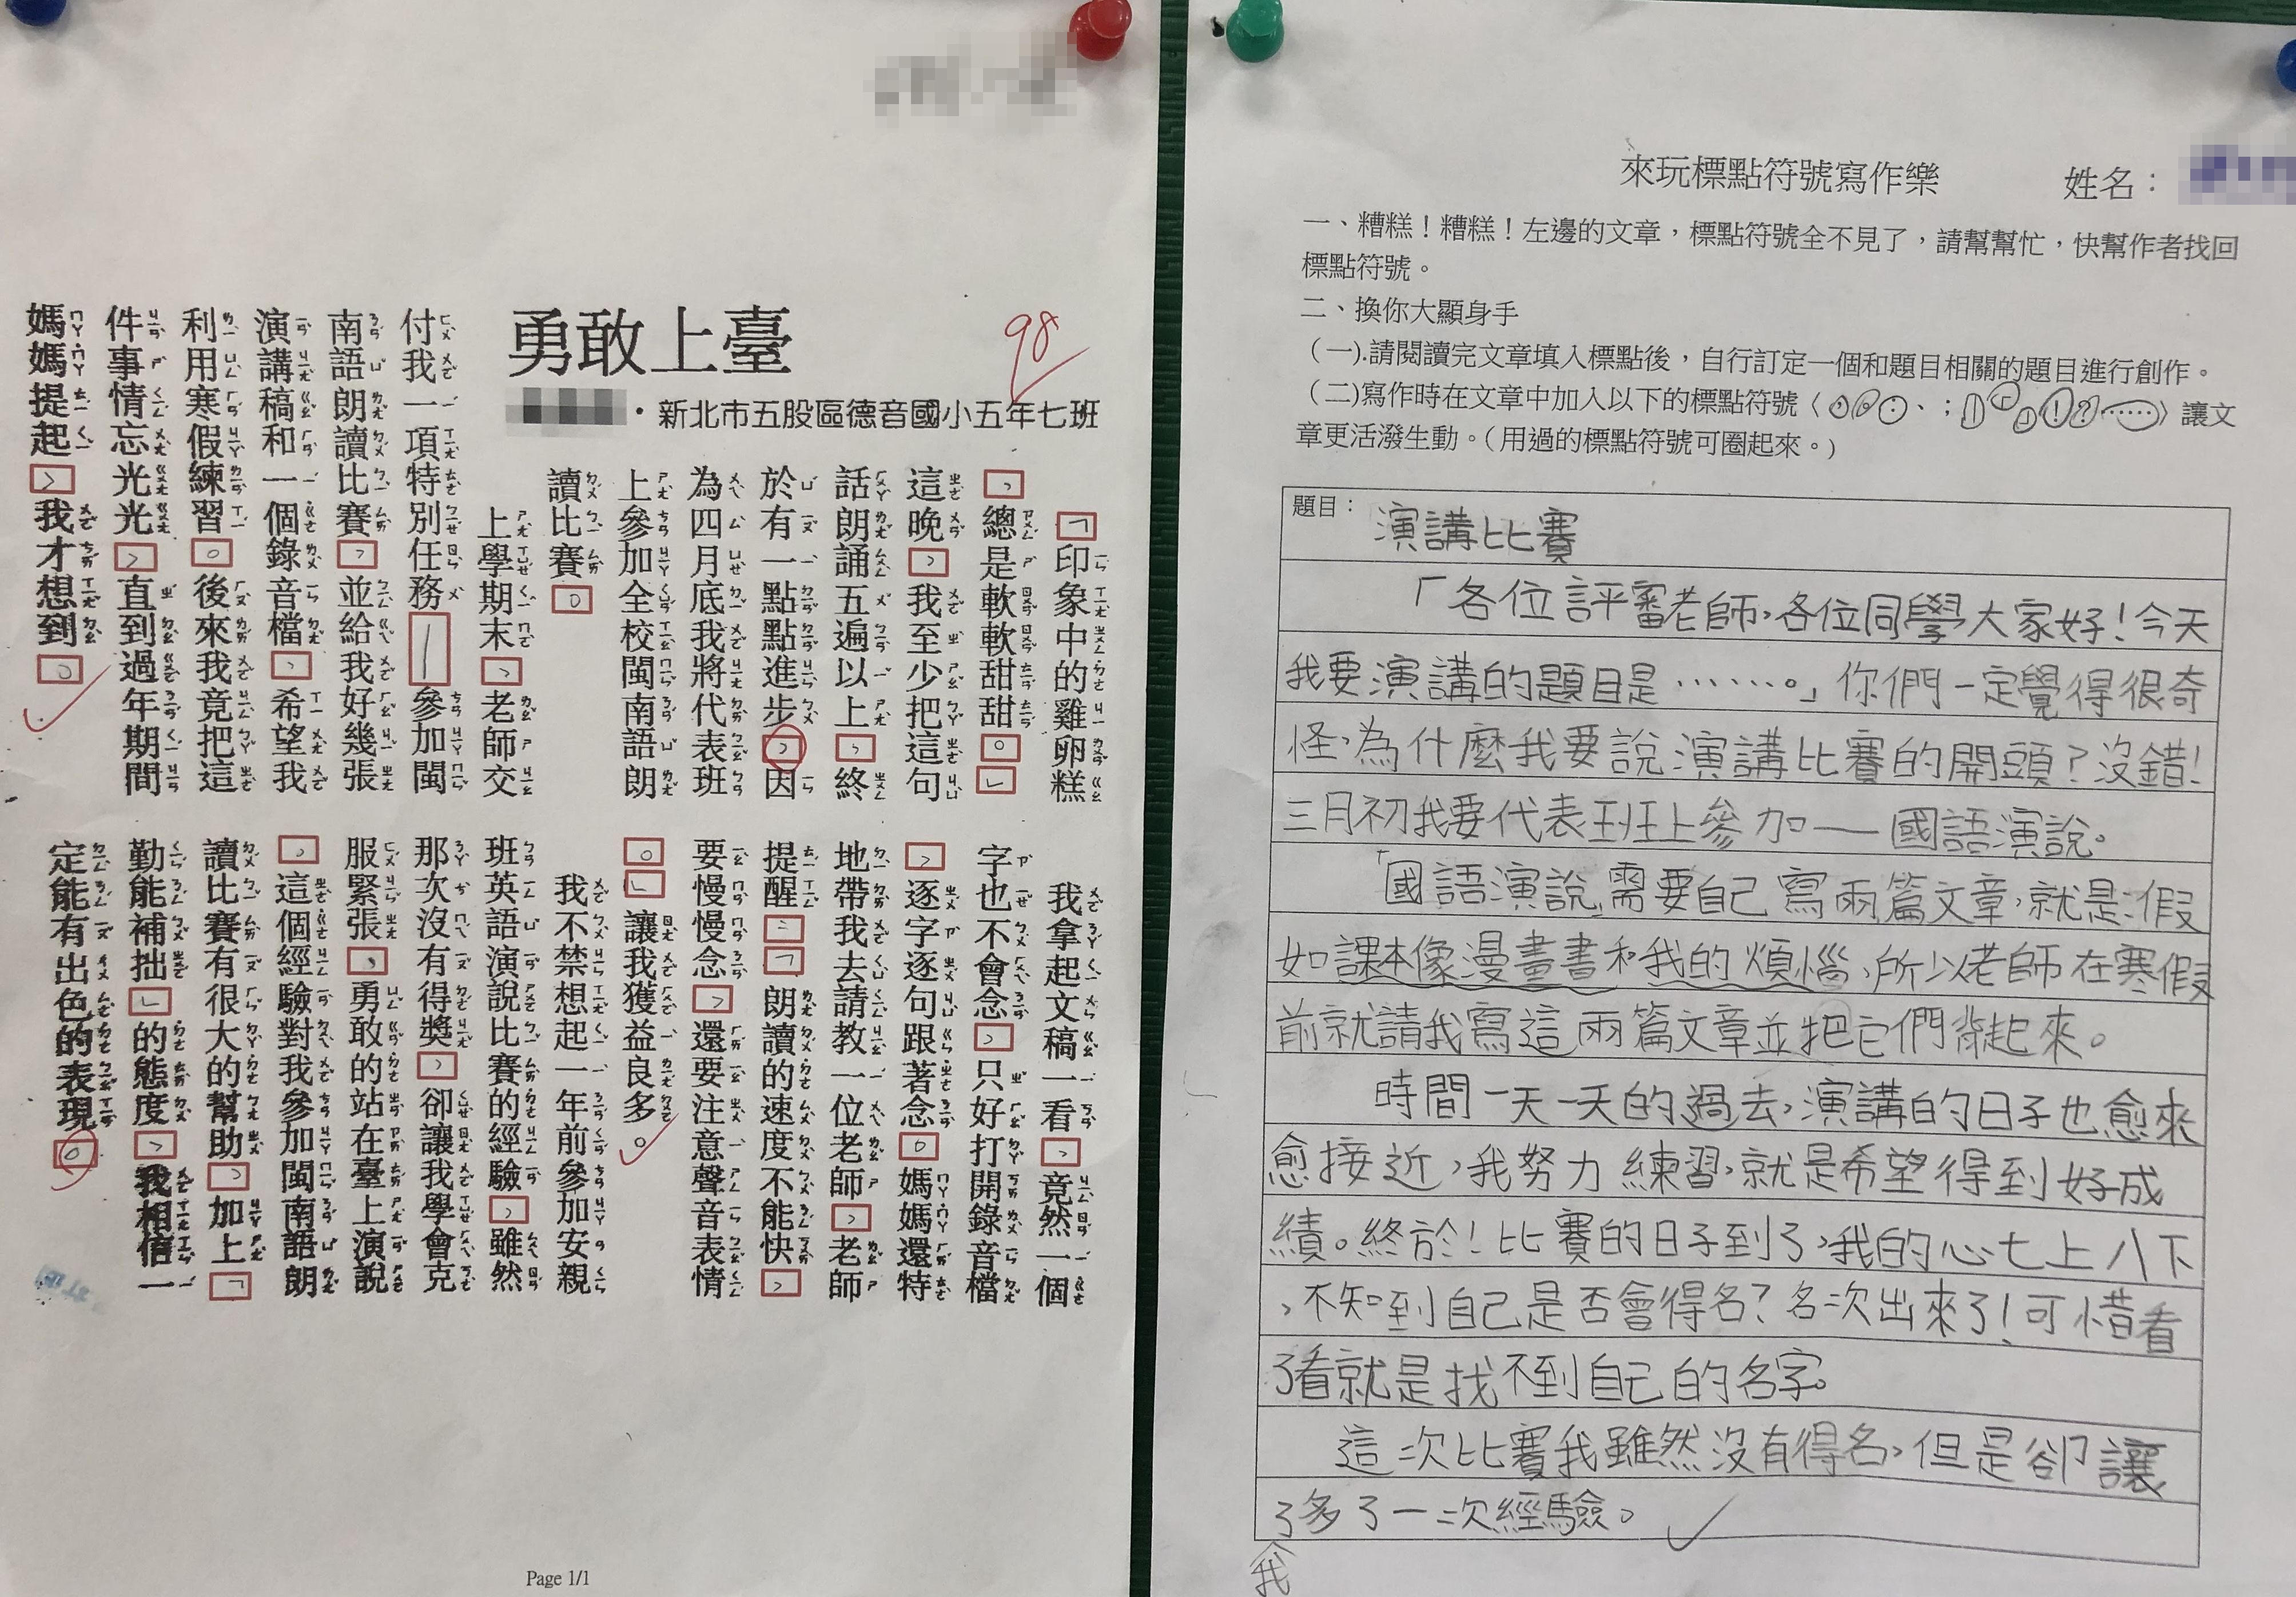 勇敢上臺
98
・新北市五股區德音國小五年七班
「印象中的雞卵糕
，總是軟軟甜甜。」
這晚，我至少把這句
話朗誦五遍以上，終
於有一點點進步，因
為四月底我將代表班
上參加全校閩南語朗
讀比賽。
上學期末，老師交
付我一項特別任務—參加閩
南語朗讀比賽，並給我好幾張
演講稿和一個錄音檔，希望我
利用寒假練習。後來我竟把這
件事情忘光光，直到過年期間
媽媽提起，我才想到。
我拿起文稿一看，竟然一個
字也不會念，只好打開錄音檔
，逐字逐句跟著念。媽媽還特
地帶我去請教一位老師，老師
提醒：「朗讀的速度不能快，
要慢慢念，還要注意聲音表情
。」讓我獲益良多。
我不禁想起一年前參加安親
班英語演說比賽的經驗，雖然
那次沒有得獎，卻讓我學會克
服緊張，勇敢的站在臺上演說
，這個經驗對我參加閩南語朗
讀比賽有很大的幫助，加上「
勤能補拙」的態度，我相信一
定能有出色的表現。
Page 1/1
來玩標點符號寫作樂
姓名：
一、糟糕！糟糕！左邊的文章，標點符號全不見了，請幫幫忙，快幫作者找回
標點符號。
二、換你大顯身手
（一).請閱讀完文章填入標點後，自行訂定一個和題目相關的題目進行創作。
（二)寫作時在文章中加入以下的標點符號〈，。：、；—「」！？……〉讓文
章更活潑生動。（用過的標點符號可圈起來。）
題目：演講比賽
「各位評審老師，各位同學大家好！今天
我要演講的題目是……。」你們一定覺得很奇
怪，為什麼我要說演講比賽的開頭？沒錯！
三月初我要代表班上參加——國語演說。
「國語演說」需要自己寫兩篇文章，就是：假
如課本像漫畫書和我的煩惱，所以老師在寒假
前就請我寫這兩篇文章並把它們背起來。
時間一天一天的過去，演講的日子也愈來
愈接近，我努力練習，就是希望得到好成
績。終於！比賽的日子到了，我的心七上八下
，不知到自己是否會得名？名次出來了！可惜看
了看就是找不到自己的名字。
這次比賽我雖然沒有得名，但是卻讓
了多了一次經驗。
我